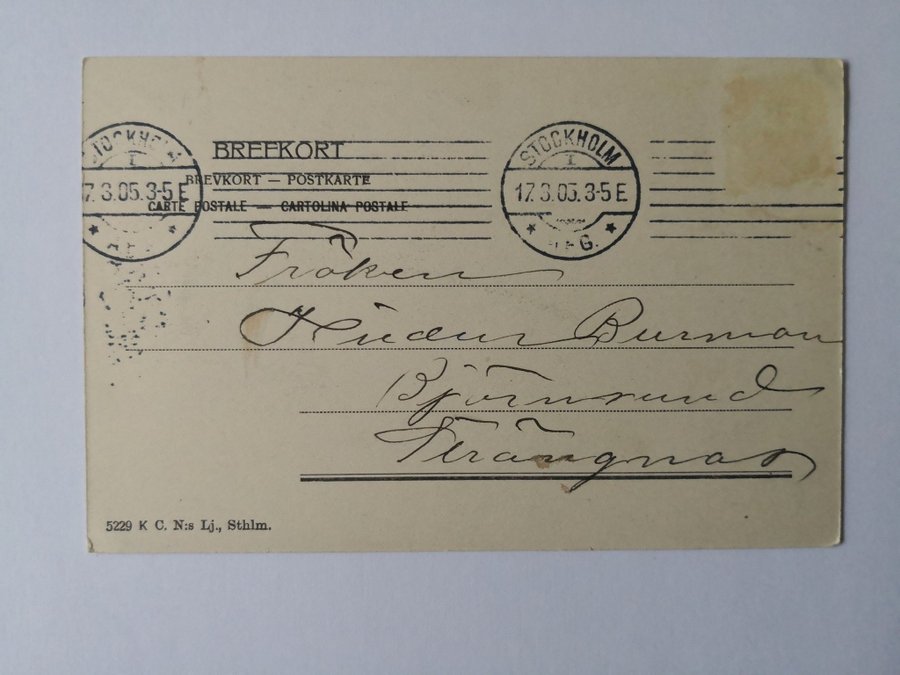 BREFKORT
BREVKORT — POSTKARTE
CARTE POSTALE — CARTOLINA POSTALE
STOCKHOLM
1
7.3.05.3-5 E
STOCKHOLM
1
17.3.05.3-5 E
G.
Fröken
Burman
Björnsund
Strängnäs
5229 K C. N:s Lj., Sthlm.